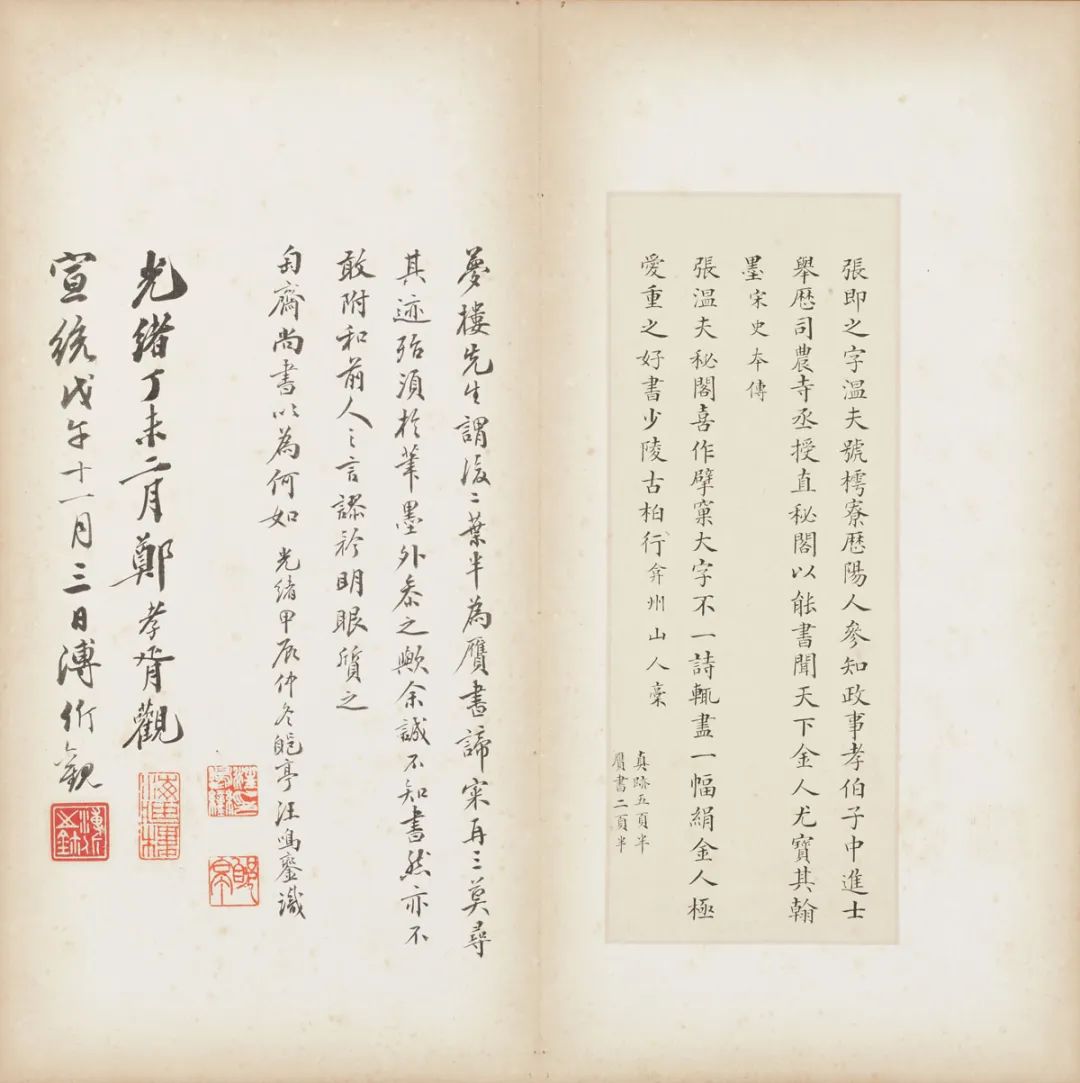 張即之字溫夫號樗寮歷陽人參知政事孝伯子中進士
舉歷司農寺丞授直秘閣以能書聞天下金人尤寶其翰
墨宋史本傳
張溫夫秘閣喜作擘窠大字不一詩輒盡一幅絹金人極
愛重之好書少陵古柏行弇州山人稾
真跡五頁半
贋書二頁半
夢樓先生謂後二葉半為贋書諦宷再三莫尋
其迹殆須於筆墨外叅之歟余誠不知書然亦不
敢附和前人之言謬矜明眼質之
匋齋尚書以為何如 光緒甲辰仲冬郋亭汪鳴鑾識
光緒丁未二月鄭孝胥觀
宣統戊午十一月三日溥伒觀
海藏樓
郋亭